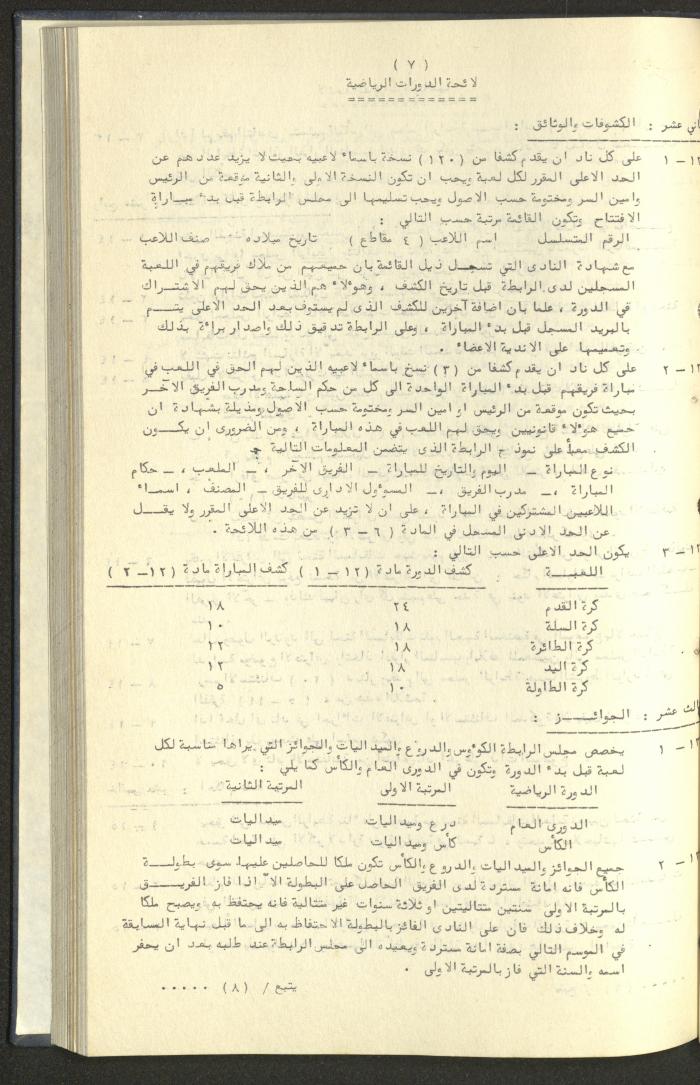 ( ٧ )
لائحة الدورات الرياضية
=============
اني عشر : الكشوفات والوثائق :
١ – ١٢ على كل ناد ان يقدم كشفا من (١٢٠) نسخة باسماء لاعبيه بحيث لا يزيد عددهم عن
الحد الاعلى المقرر لكل لعبة ويجب ان تكون النسخة الاولى والثانية موقعة من الرئيس
وامين السر ومختومة حسب الاصول ويجب تسليمها الى مجلس الرابطة قبل بدء مباراة
الافتتاح وتكون القائمة مرتبة حسب التالي :
الرقم المتسلسل اسم اللاعب ( ٤ مقاطع ) تاريخ ميلاده صنف اللاعب
مع شهادة النادى التي تسجل ذيل القائمة بان جميعهم من ملاك فريقهم في اللعبة
المسجلين لدى الرابطة قبل تاريخ الكشف ، وهؤلاء هم الذين يحق لهم الاشتراك
في الدورة ، علما بان اضافة آخرين للكشف الذى لم يستوف بعد الحد الاعلى يتم
بالبريد المسجل قبل بدء المباراة ، وعلى الرابطة تدقيق ذلك واصدار براءة بذلك
وتعميمها على الاندية الاعضاء .
٢ – ١٢ على كل ناد ان يقدم كشفا من (٣) نسخ باسماء لاعبيه الذين لهم الحق في اللعب في
مباراة فريقهم قبل بدء المباراة الواحدة الى كل من حكم الساحة ومدرب الفريق الآخر
بحيث تكون موقعة من الرئيس او امين السر ومختومة حسب الاصول ومذيلة بشهادة ان
جميع هؤلاء قانونيين ويحق لهم اللعب في هذه المباراة ، ومن الضرورى ان يكون
الكشف معبأ على نموذج الرابطة الذى يتضمن المعلومات التالية :
نوع المباراة – اليوم والتاريخ للمباراة – الفريق الآخر ، – الملعب ، – حكام
المباراة ، – مدرب الفريق ، – المسؤول الادارى للفريق – المصنف ، اسماء
اللاعبين المشتركين في المباراة ، على ان لا تزيد عن الحد الاعلى المقرر ولا يقل
عن الحد الادنى المسجل في المادة ( ٦ – ٣ ) من هذه اللائحة .
٣ – ١٢ يكون الحد الاعلى حسب التالي :
اللعبة كشف الدورة مادة (١٢ – ١ ) كشف المباراة مادة (١٢– ٢ )
كرة القدم ٢٤ ١٨
كرة السلة ١٨ ١٠
كرة الطائرة ١٨ ٢٢
كرة اليد ١٨ ١٢
كرة الطاولة ١٠ ٥
الث عشر : الجوائز :
١ – ١٣ يخصص مجلس الرابطة الكؤوس والدروع والميداليات والجوائز التي يراها مناسبة لكل
لعبة قبل بدء الدورة وتكون في الدورى العام والكأس كما يلي :
الدورة الرياضية المرتبة الاولى المرتبة الثانية
الدورى العام درع وميداليات ميداليات
الكأس كأس وميداليات ميداليات
٢ – ١٣ جميع الجوائز والميداليات والدروع والكأس تكون ملكا للحاصلين عليها سوى بطولة
الكأس فانه امانة مستردة لدى الفريق الحاصل على البطولة الا اذا فاز الفريق
بالمرتبة الاولى سنتين متتاليتين او ثلاثة سنوات غير متتالية فانه يحتفظ به ويصبح ملكا
له وخلاف ذلك فان على النادى الفائز بالبطولة الاحتفاظ به الى ما قبل نهاية المسابقة
في الموسم التالي بصفة امانة مستردة ويعيده الى مجلس الرابطة عند طلبه بعد ان يحفر
اسمه والسنة التي فاز بالمرتبة الاولى .
يتبع / (٨) ٠٠٠٠٠